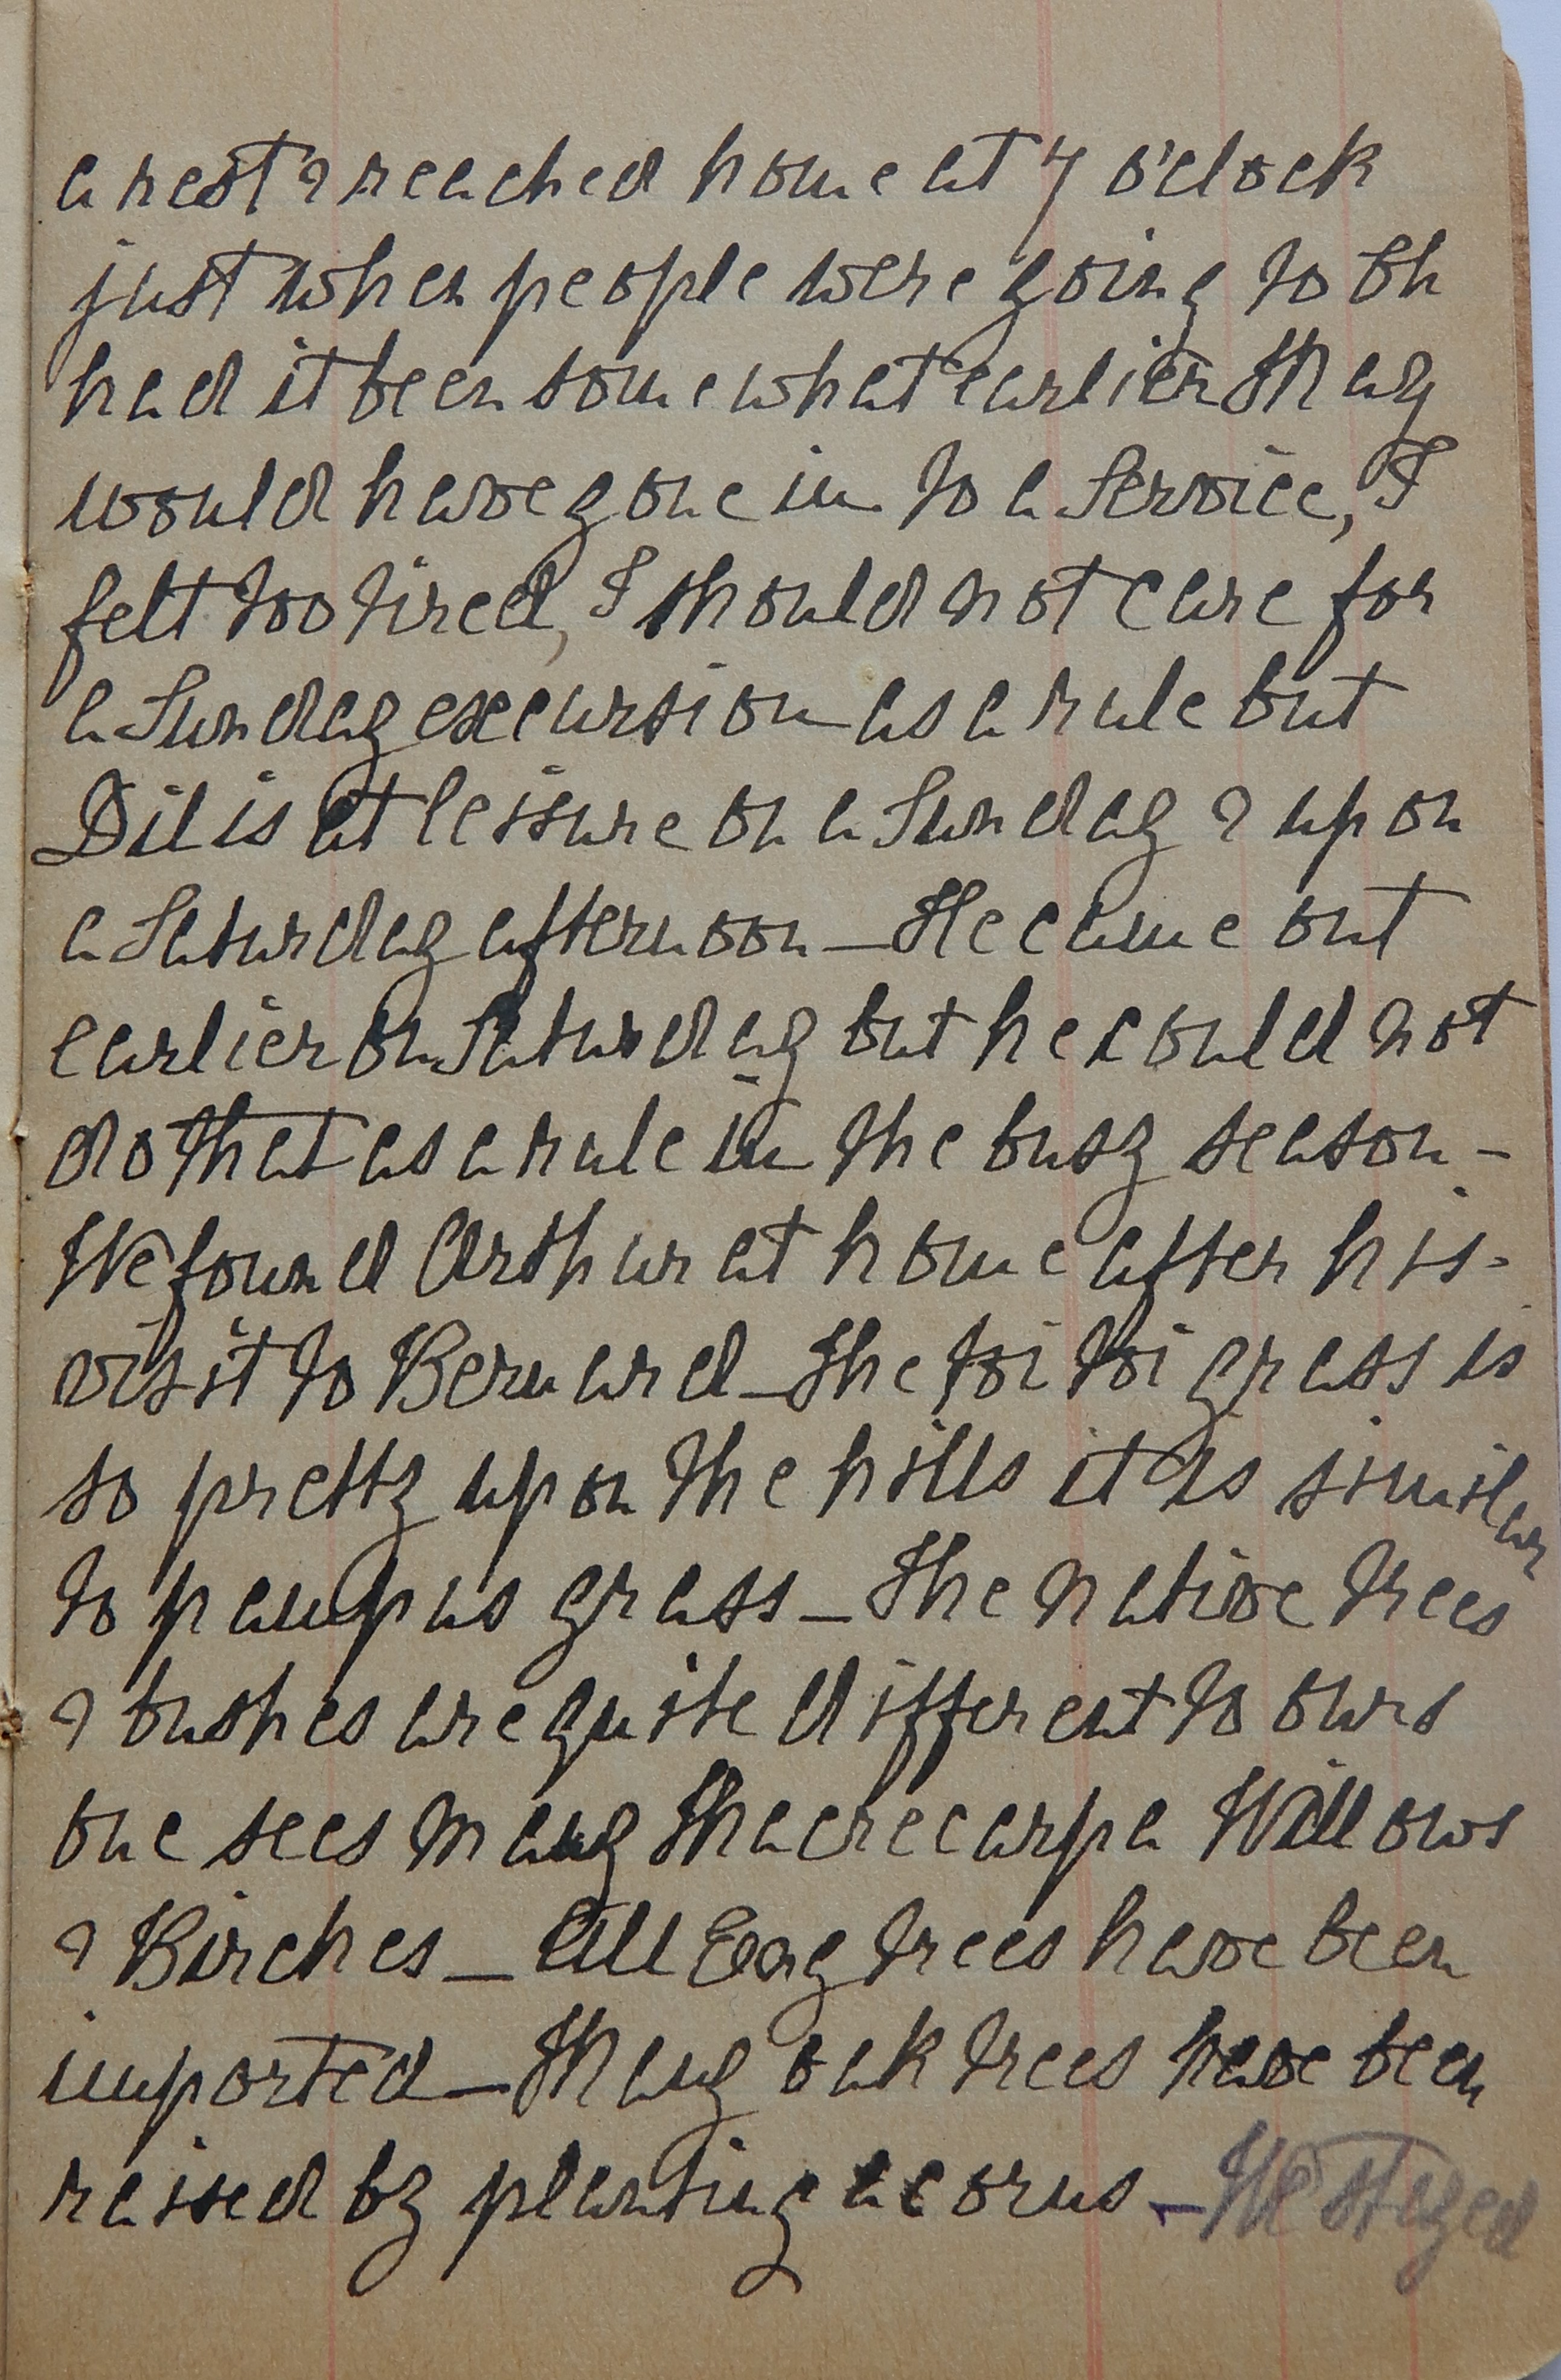 a rest & reached home at 7 o'clock
just when people were going to Ch
had it been somewhat earlier they
would have gone in to a Service, I
felt too tired, I should not care for
a Sunday excursion as a rule but
Dil is at leisure on a Sunday & upon
a Saturday afternoon – He came out
earlier on Saturday but he could not
do that as a rule in the busy season –
We found Arthur at home after his
visit to Bernard – The toi toi grass is
so pretty upon the hills it is similar
to pampas grass – The native trees
& bushes are quite different to ours
one sees many Macrecarpa Willows
& Birches – All Eng trees have been
imported – Many oak trees have been
raised by planting acorns – We stayed